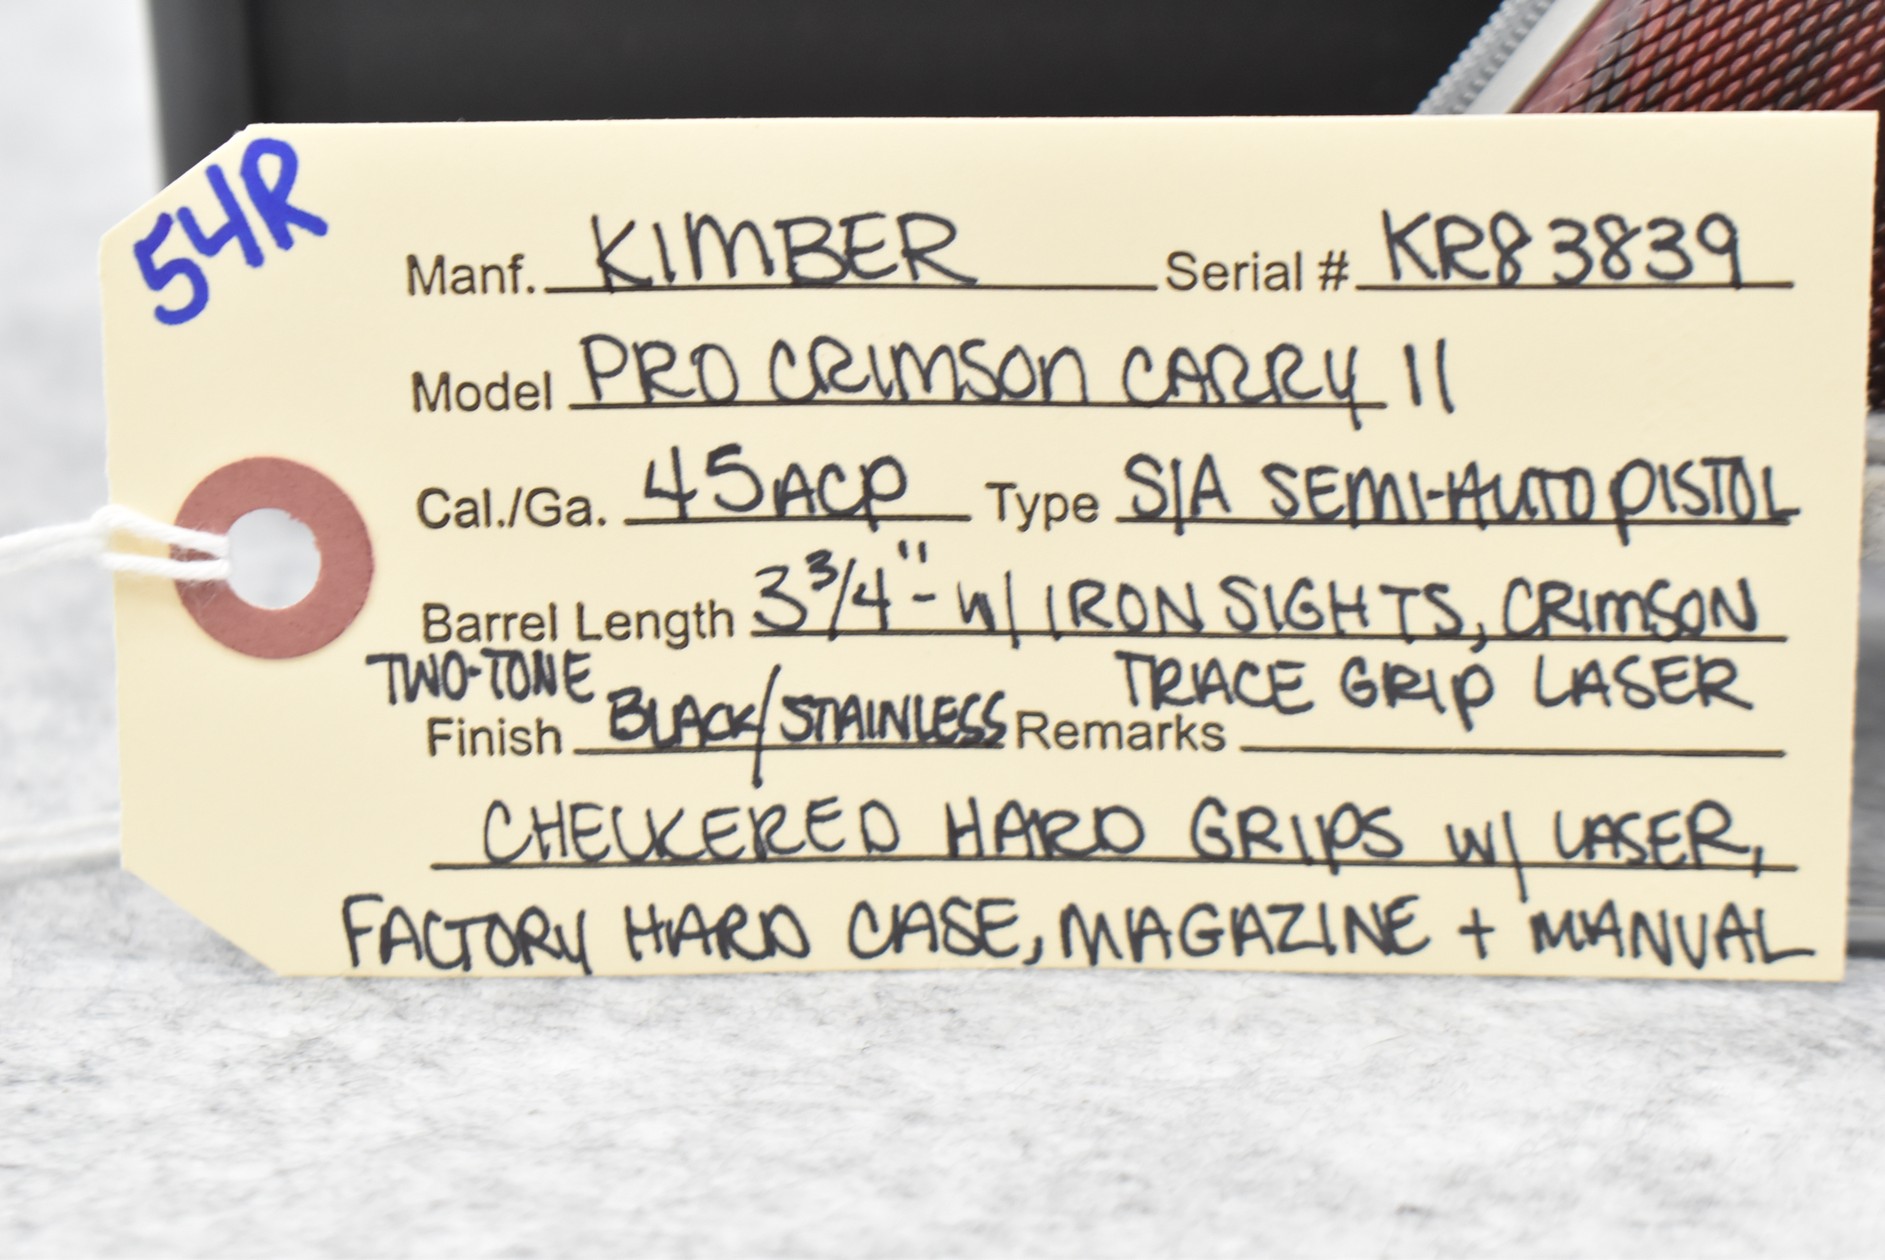 54R
Manf. KIMBER Serial # KR83839
Model PRO CRIMSON CARRY II
Cal./Ga. 45ACP Type S/A SEMI-AUTO PISTOL
Barrel Length 3 3/4" - W/ IRON SIGHTS, CRIMSON
TRACE GRIP LASER
TWO-TONE
Finish BLACK/STAINLESS Remarks
CHECKERED HARD GRIPS W/ LASER,
FACTORY HARD CASE, MAGAZINE + MANUAL